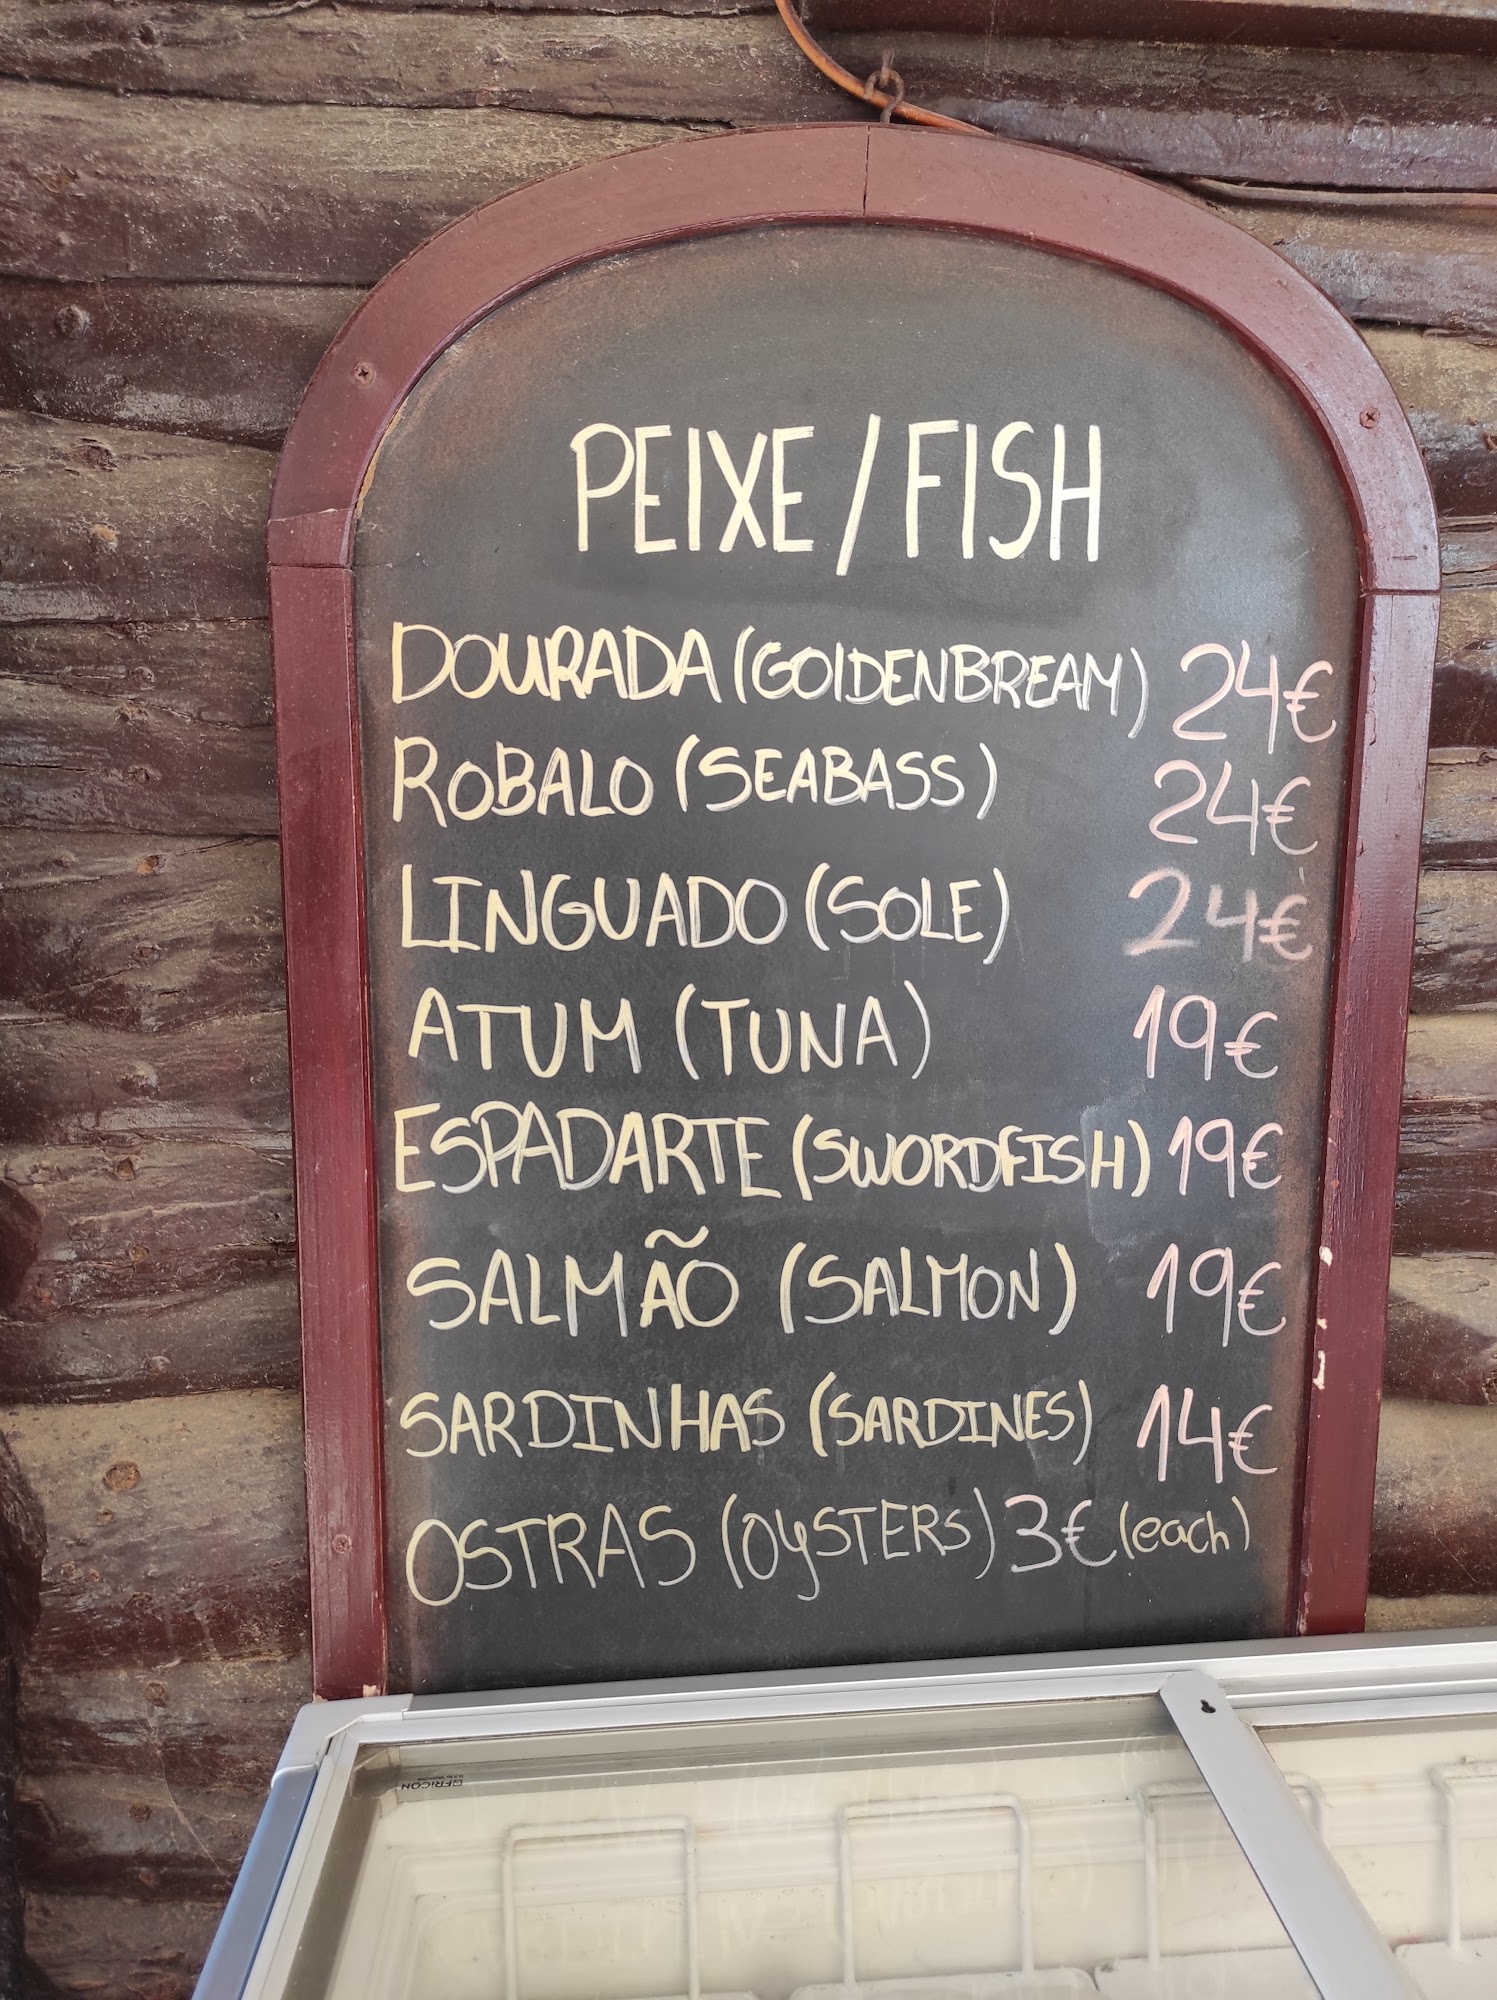 PEIXE / FISH
DOURADA (GOLDENBREAM) 24€
ROBALO (SEABASS) 24€
LINGUADO (SOLE) 24€
ATUM (TUNA) 19€
ESPADARTE (SWORDFISH) 19€
SALMÃO (SALMON) 19€
SARDINHAS (SARDINES) 14€
OSTRAS (OYSTERS) 3€ (each)